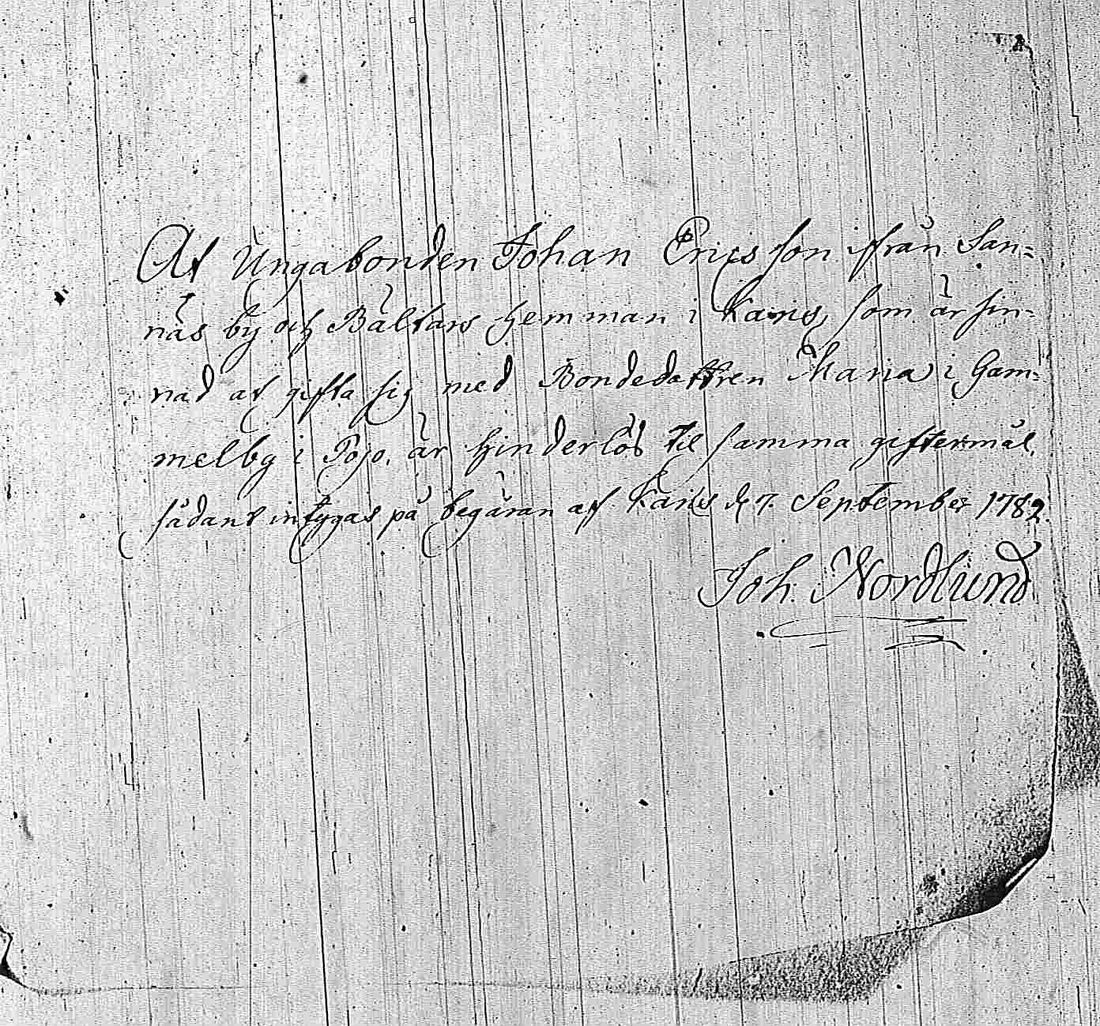 At Ungabonden Johan Ericsson ifrån San-
näs by och Bältars hemman i Karis, som är sin-
nad at gifta sig med Bondedottren Maria i Gam-
melby i Pojo, är hinderlös til samma giftermål,
sådant intygas på begäran af Karis d 7. September 1782.
Joh. Nordlund